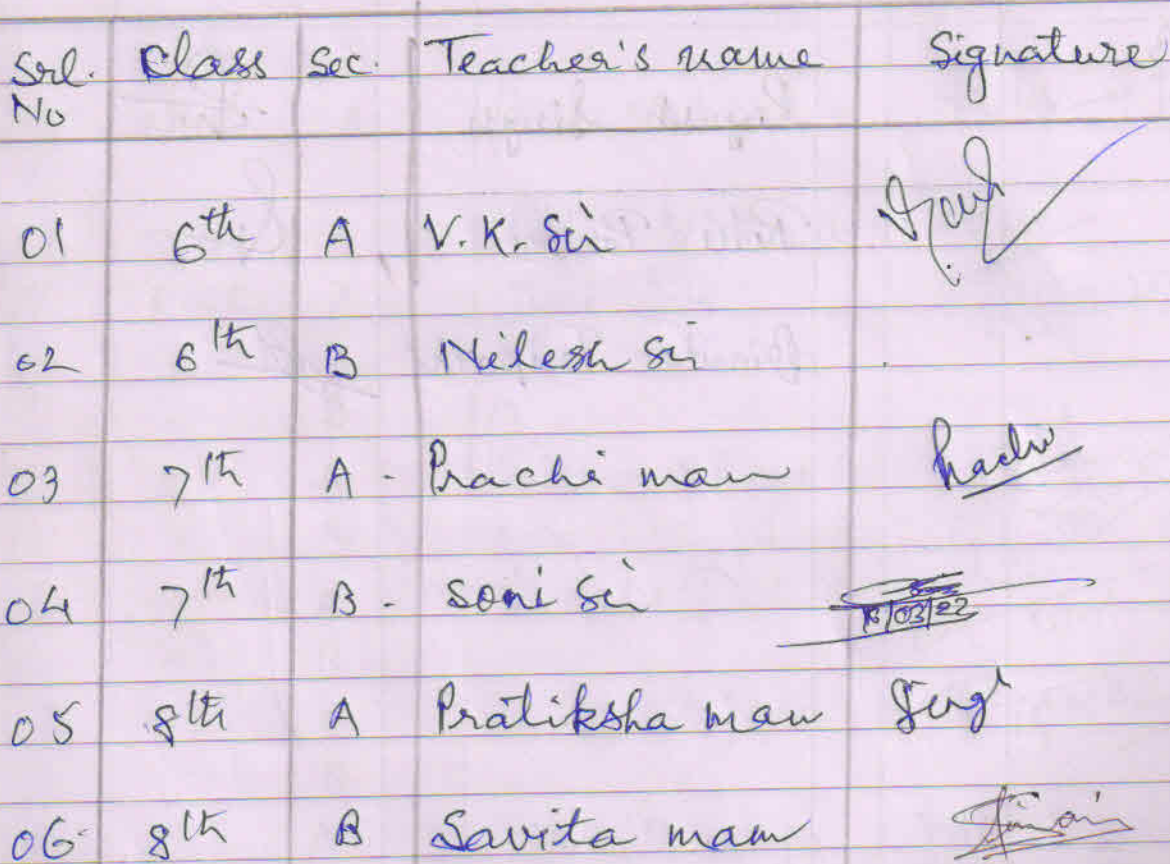 Srl. Class Sec. Teacher's name Signature
No
01 6th A V.K. Sir
02 6th B Nilesh Sir
03 7th A - Prachi mam Prachi
04 7th B - Soni Sir
/03/22
05 8th A Pratiksha mam
06 8th B Savita mam